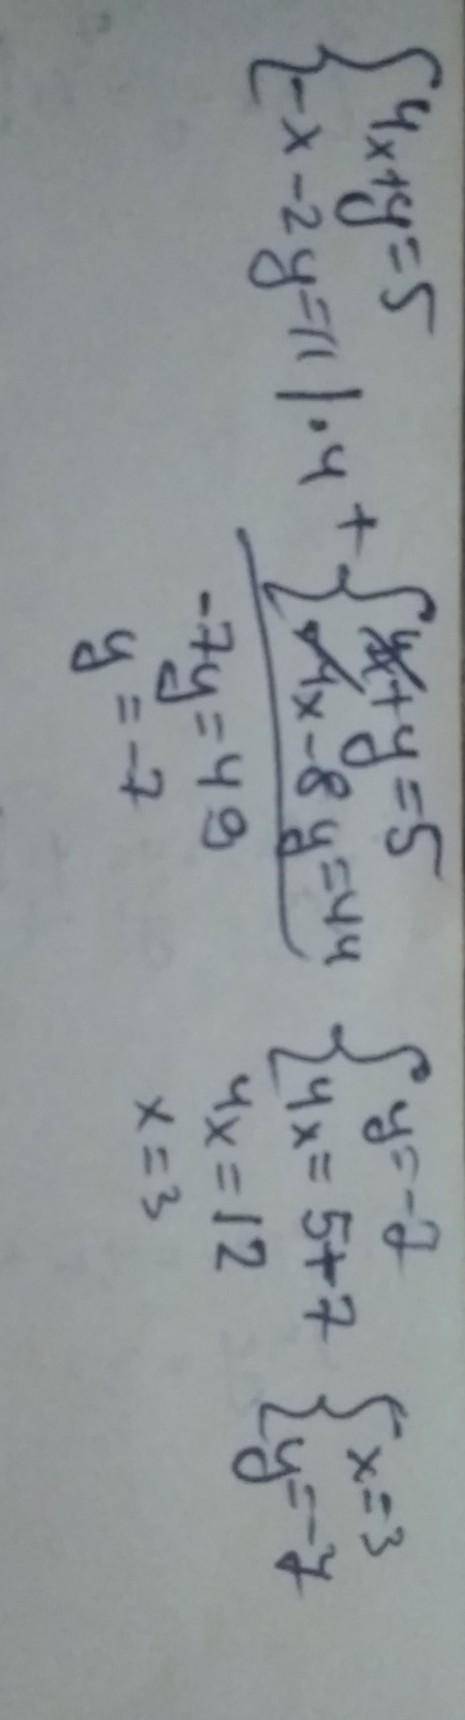 {4x+y=5
{-x-2y=11 |·4
+ {4x+y=5
{-4x-8y=44
-7y=49
y=-7
{y=-7
{4x=5+7
4x=12
x=3
{x=3
{y=-7